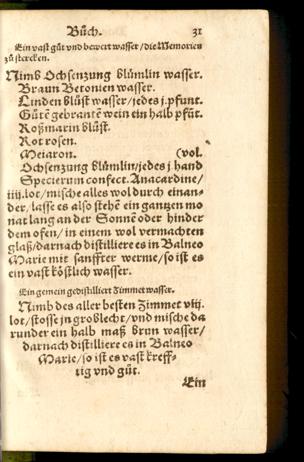 Bůch. 31
Ein vast gůt vnd bewert wasser / die Memorien
zů stercken.
Nimb Ochsenzung blůmlin wasser.
Braun Betonien wasser.
Linden blůst wasser / jedes j. pfunt.
Gůtẽ gebrantẽ wein ein halb pfũt.
Roßmarin blůst.
Rot rosen.
Meiaron. (vol.
Ochsenzung blůmlin / jedes j hand
Specierum confect. Anacardine /
iiij. lot / mische alles wol durch einan-
der / lasse es also stehẽ ein gantzen mo
nat lang an der Sonnẽ oder hinder
dem ofen / in einem wol vermachten
glaß / darnach distilliere es in Balneo
Marie mit sanffter werme / so ist es
ein vast köstlich wasser.
Ein gemein gedistilliert Zimmet wasser.
Nimb des aller besten Zimmet viij.
lot / stosse jn groblecht / vnd mische da
runder ein halb maß brun wasser /
darnach distilliere es in Balneo
Marie / so ist es vast kreff-
tig vnd gůt.
Ein